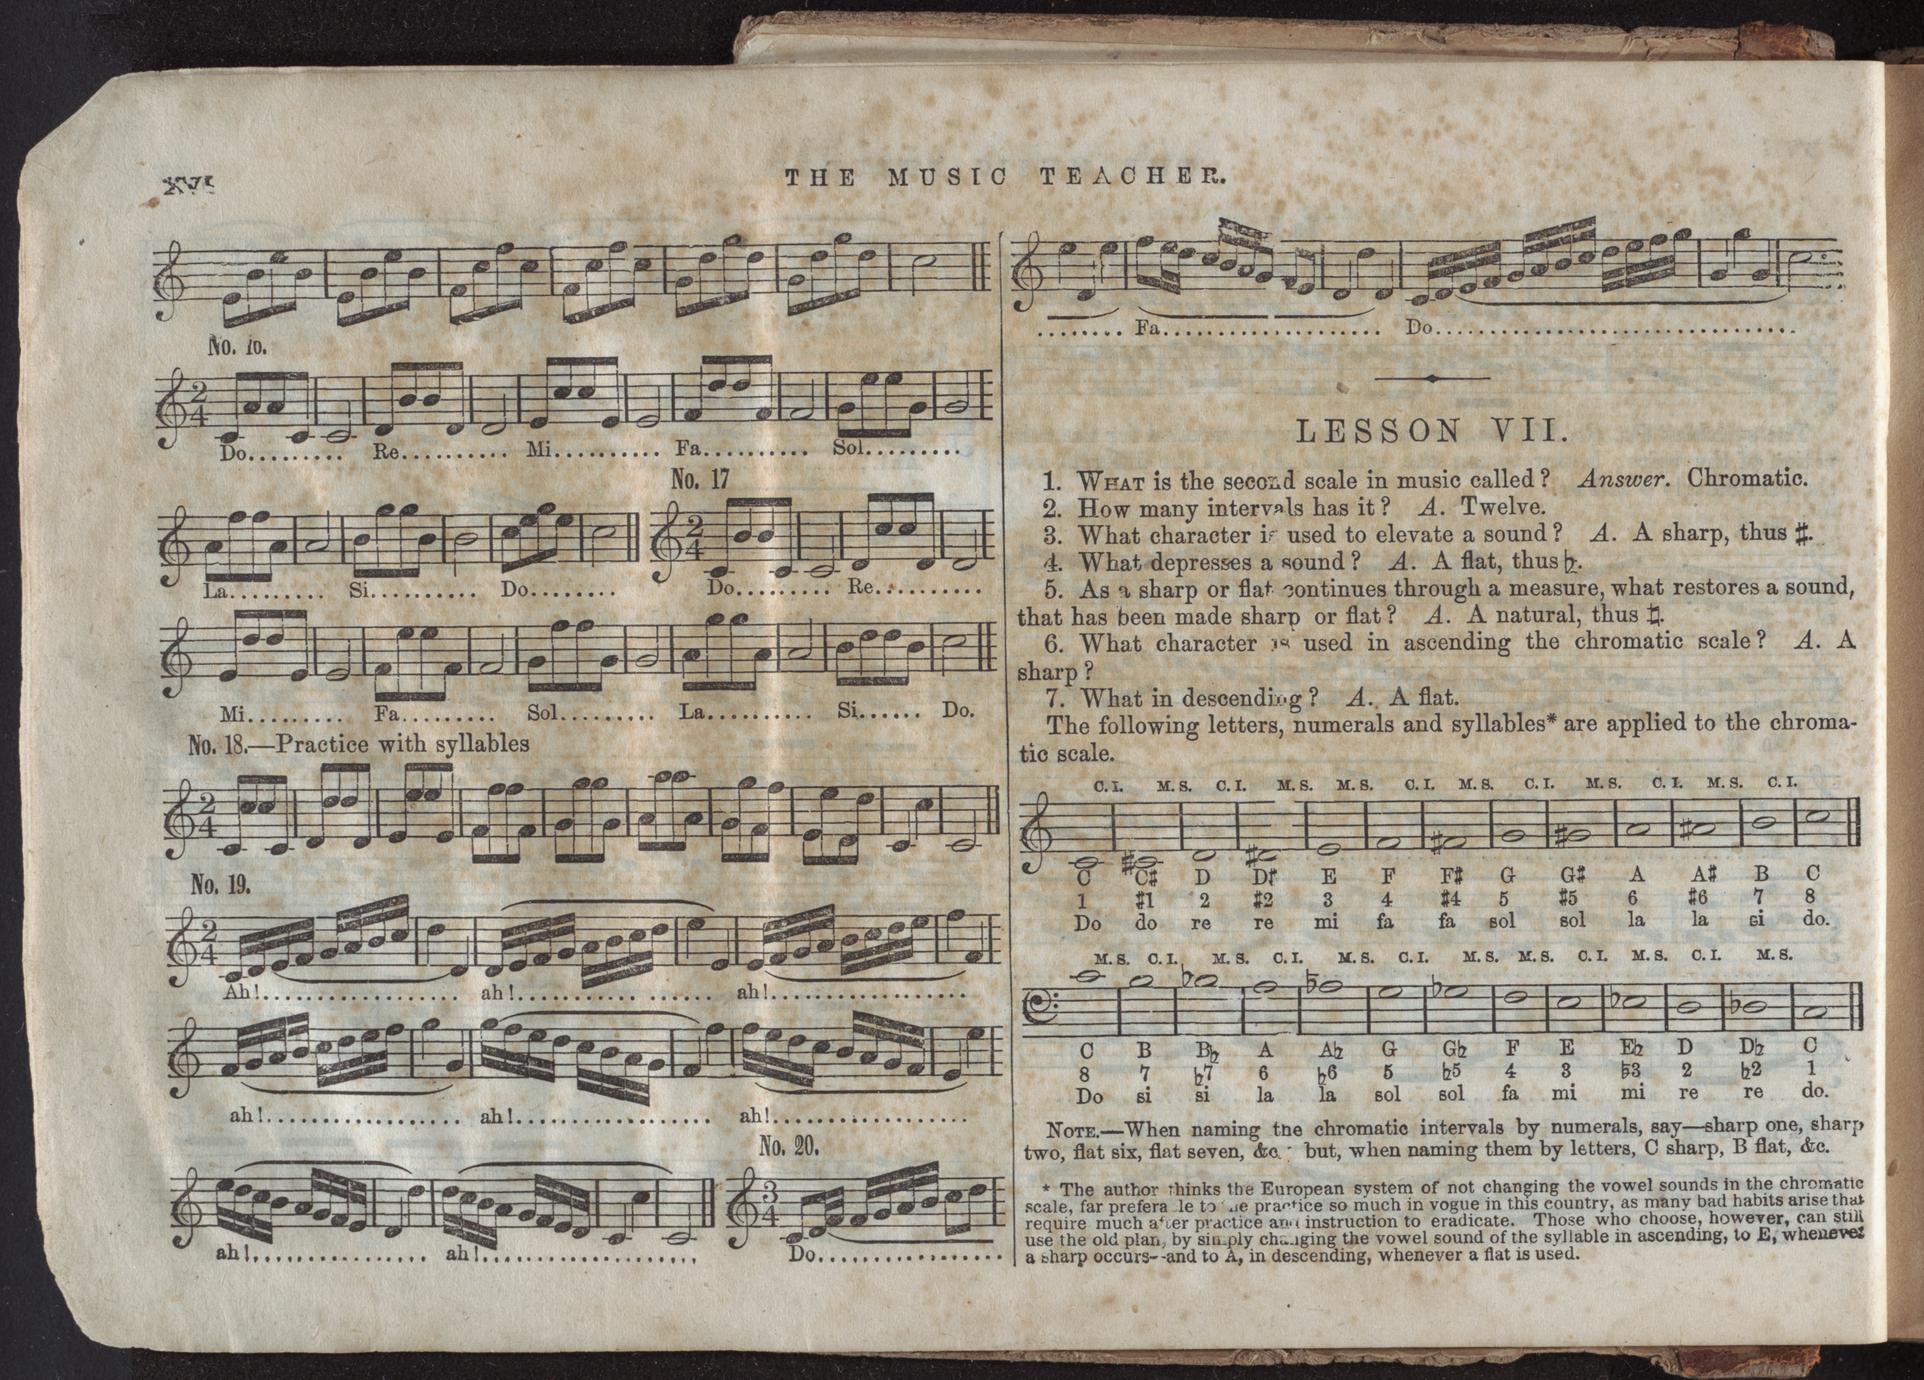 XVI
THE MUSIC TEACHER.
No. 16.
Do......... Re.......... Mi.......... Fa.......... Sol.........
No. 17
La......... Si.......... Do........ Do......... Re..........
Mi......... Fa......... Sol......... La.......... Si...... Do.
No. 18.—Practice with syllables
No. 19.
Ah!.................. ah!.................. ah!..................
ah!.................. ah!.................. ah!..................
No. 20.
ah!.................. ah!.................. Do..................
........ Fa.................... Do.................................
LESSON VII.
1. WHAT is the second scale in music called? Answer. Chromatic.
2. How many intervals has it? A. Twelve.
3. What character is used to elevate a sound? A. A sharp, thus ♯.
4. What depresses a sound? A. A flat, thus ♭.
5. As a sharp or flat continues through a measure, what restores a sound,
that has been made sharp or flat? A. A natural, thus ♮.
6. What character is used in ascending the chromatic scale? A. A
sharp?
7. What in descending? A. A flat.
The following letters, numerals and syllables* are applied to the chroma-
tic scale.
C. I. M. S. C. I. M. S. M. S. C. I. M. S. C. I. M. S. C. I. M. S. C. I.
C C♯ D D♯ E F F♯ G G♯ A A♯ B C
1 ♯1 2 ♯2 3 4 ♯4 5 ♯5 6 ♯6 7 8
Do do re re mi fa fa sol sol la la si do.
M. S. C. I. M. S. C. I. M. S. C. I. M. S. M. S. C. I. M. S. C. I. M. S.
C B B♭ A A♭ G G♭ F E E♭ D D♭ C
8 7 ♭7 6 ♭6 5 ♭5 4 3 ♭3 2 ♭2 1
Do si si la la sol sol fa mi mi re re do.
NOTE.—When naming the chromatic intervals by numerals, say—sharp one, sharp
two, flat six, flat seven, &c. but, when naming them by letters, C sharp, B flat, &c.
* The author thinks the European system of not changing the vowel sounds in the chromatic
scale, far preferable to the practice so much in vogue in this country, as many bad habits arise that
require much after practice and instruction to eradicate. Those who choose, however, can still
use the old plan, by simply changing the vowel sound of the syllable in ascending, to E, whenever
a sharp occurs--and to A, in descending, whenever a flat is used.